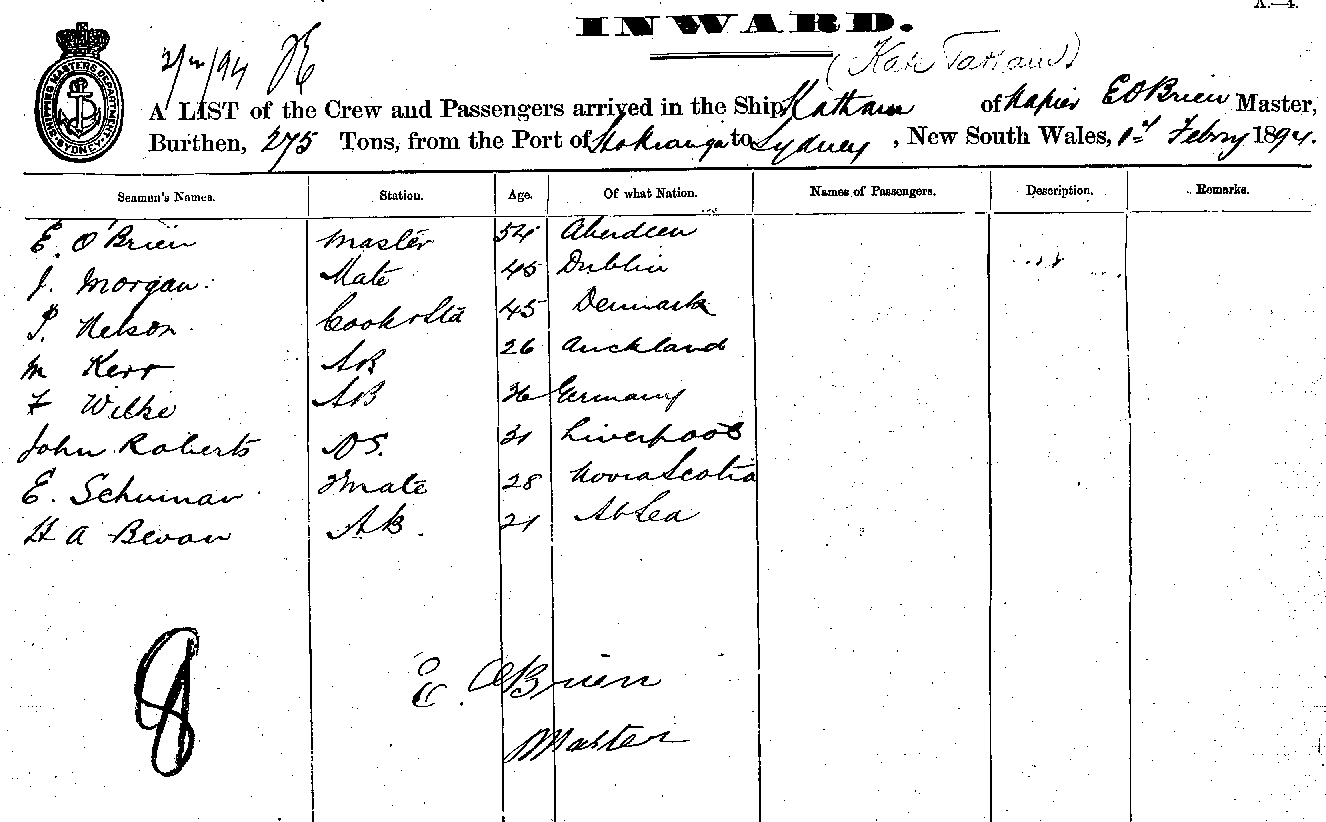 A.—4.
INWARD.
SHIPPING MASTERS DEPARTMENT SYDNEY
(Kate Tatham)
A LIST of the Crew and Passengers arrived in the Ship Katham of Napier E OBrien Master,
Burthen, 275 Tons, from the Port of Hokianga to Sydney, New South Wales, 1st Febry 1894.
Seamen's Names. Station. Age. Of what Nation. Names of Passengers. Description. Remarks.
E. O'Brien Master 54 Aberdeen
J. Morgan Mate 45 Dublin
P. Nelson Cook & Std 45 Denmark
M Kerr AB 26 Auckland
F Wilke AB 36 Germany
John Roberts OS. 31 Liverpool
E. Schuman 2 mate 28 Novia Scotia
H A Bevan AB. 21 At Sea
8
E. OBrien
Master